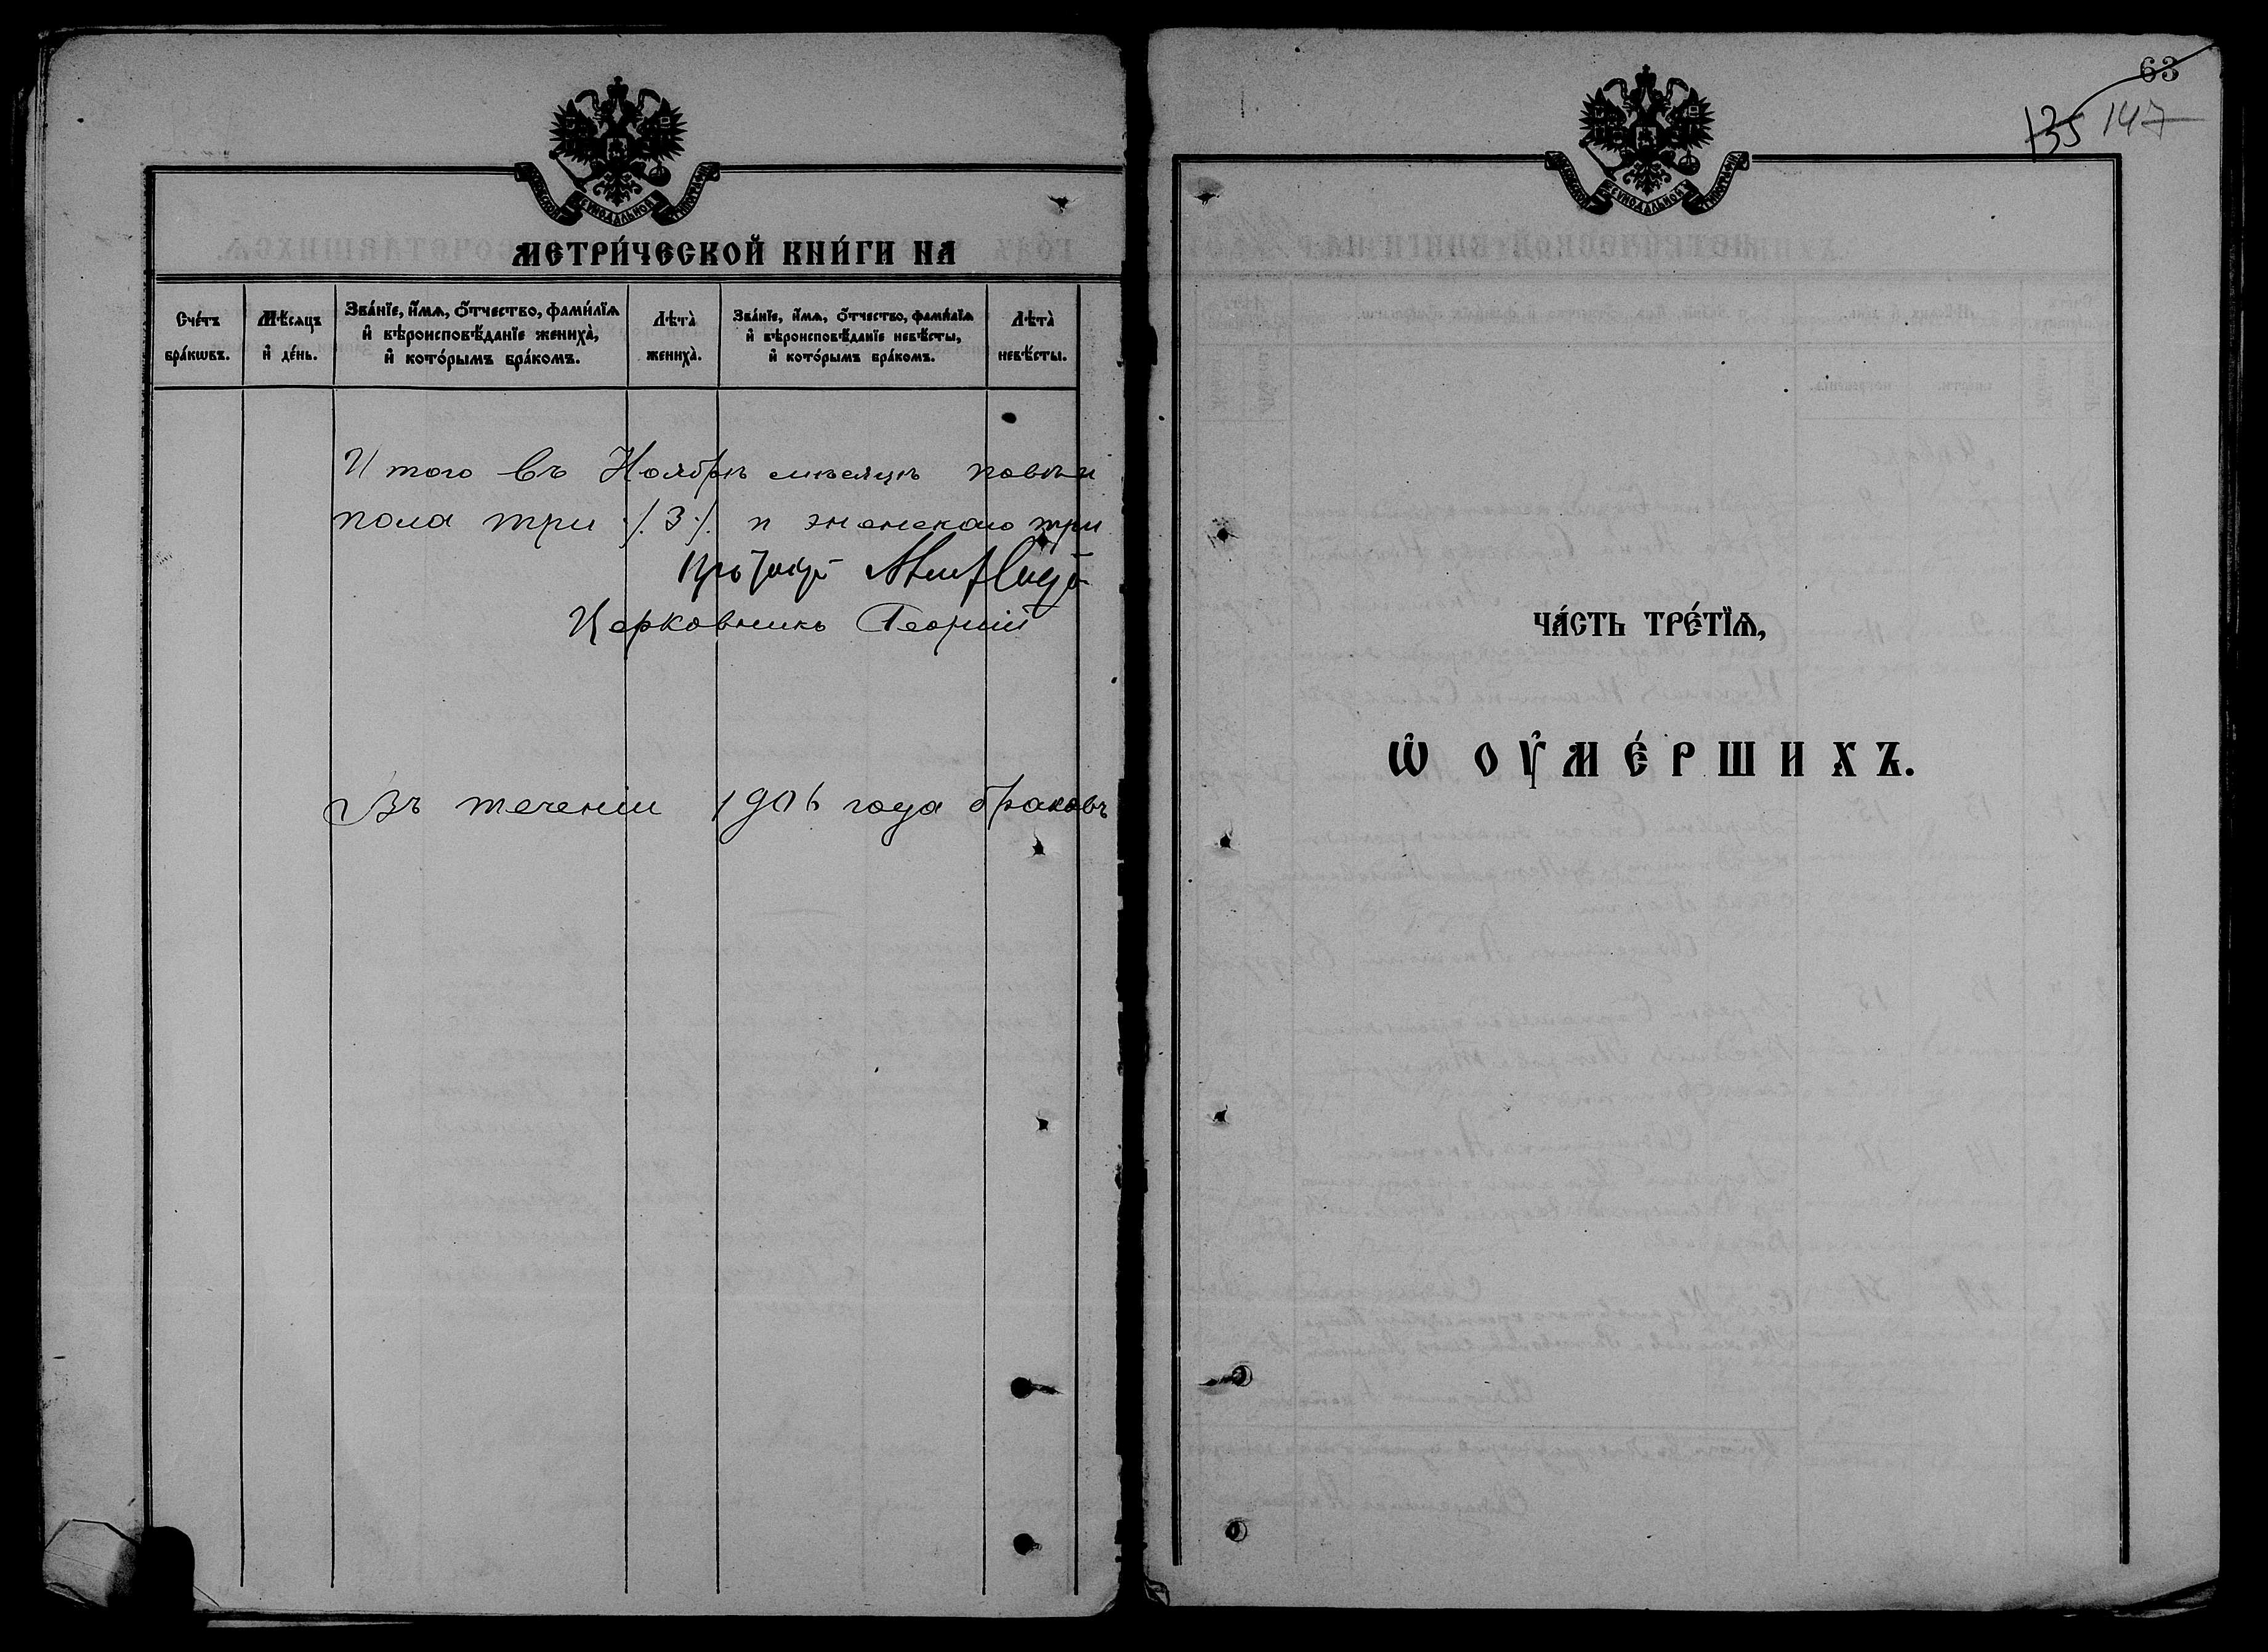 МЕТРИ́ЧЕСКОЙ КНИ́ГИ НА
Сче́тъ бра́кѡвъ.
Мѣ́сяцъ и҆ де́нь.
Зва́нїе, и҆́мѧ, ѻ҆́тчество, фами́лїѧ
и҆ вѣроисповѣ́данїе жениха̀,
и҆ кото́рымъ бра́комъ.
Лѣта̀ жениха̀.
Зва́нїе, и҆́мѧ, ѻ҆́тчество, фами́лїѧ
и҆ вѣроисповѣ́данїе невѣ́сты,
и҆ кото́рымъ бра́комъ.
Лѣта̀ невѣ́сты.
Итого въ Ноябрѣ мѣсяцѣ
пола три /3/ и женскаго три
Церковникъ Георгій
Въ теченіи 1906 года браковъ
СѴНОДАЛЬНОЙ
63
135 147
СѴНОДАЛЬНОЙ
ЧА́СТЬ ТРЕ́ТЇѦ,
Ѡ҆ ОУ҆МЕ́РШИХЪ.